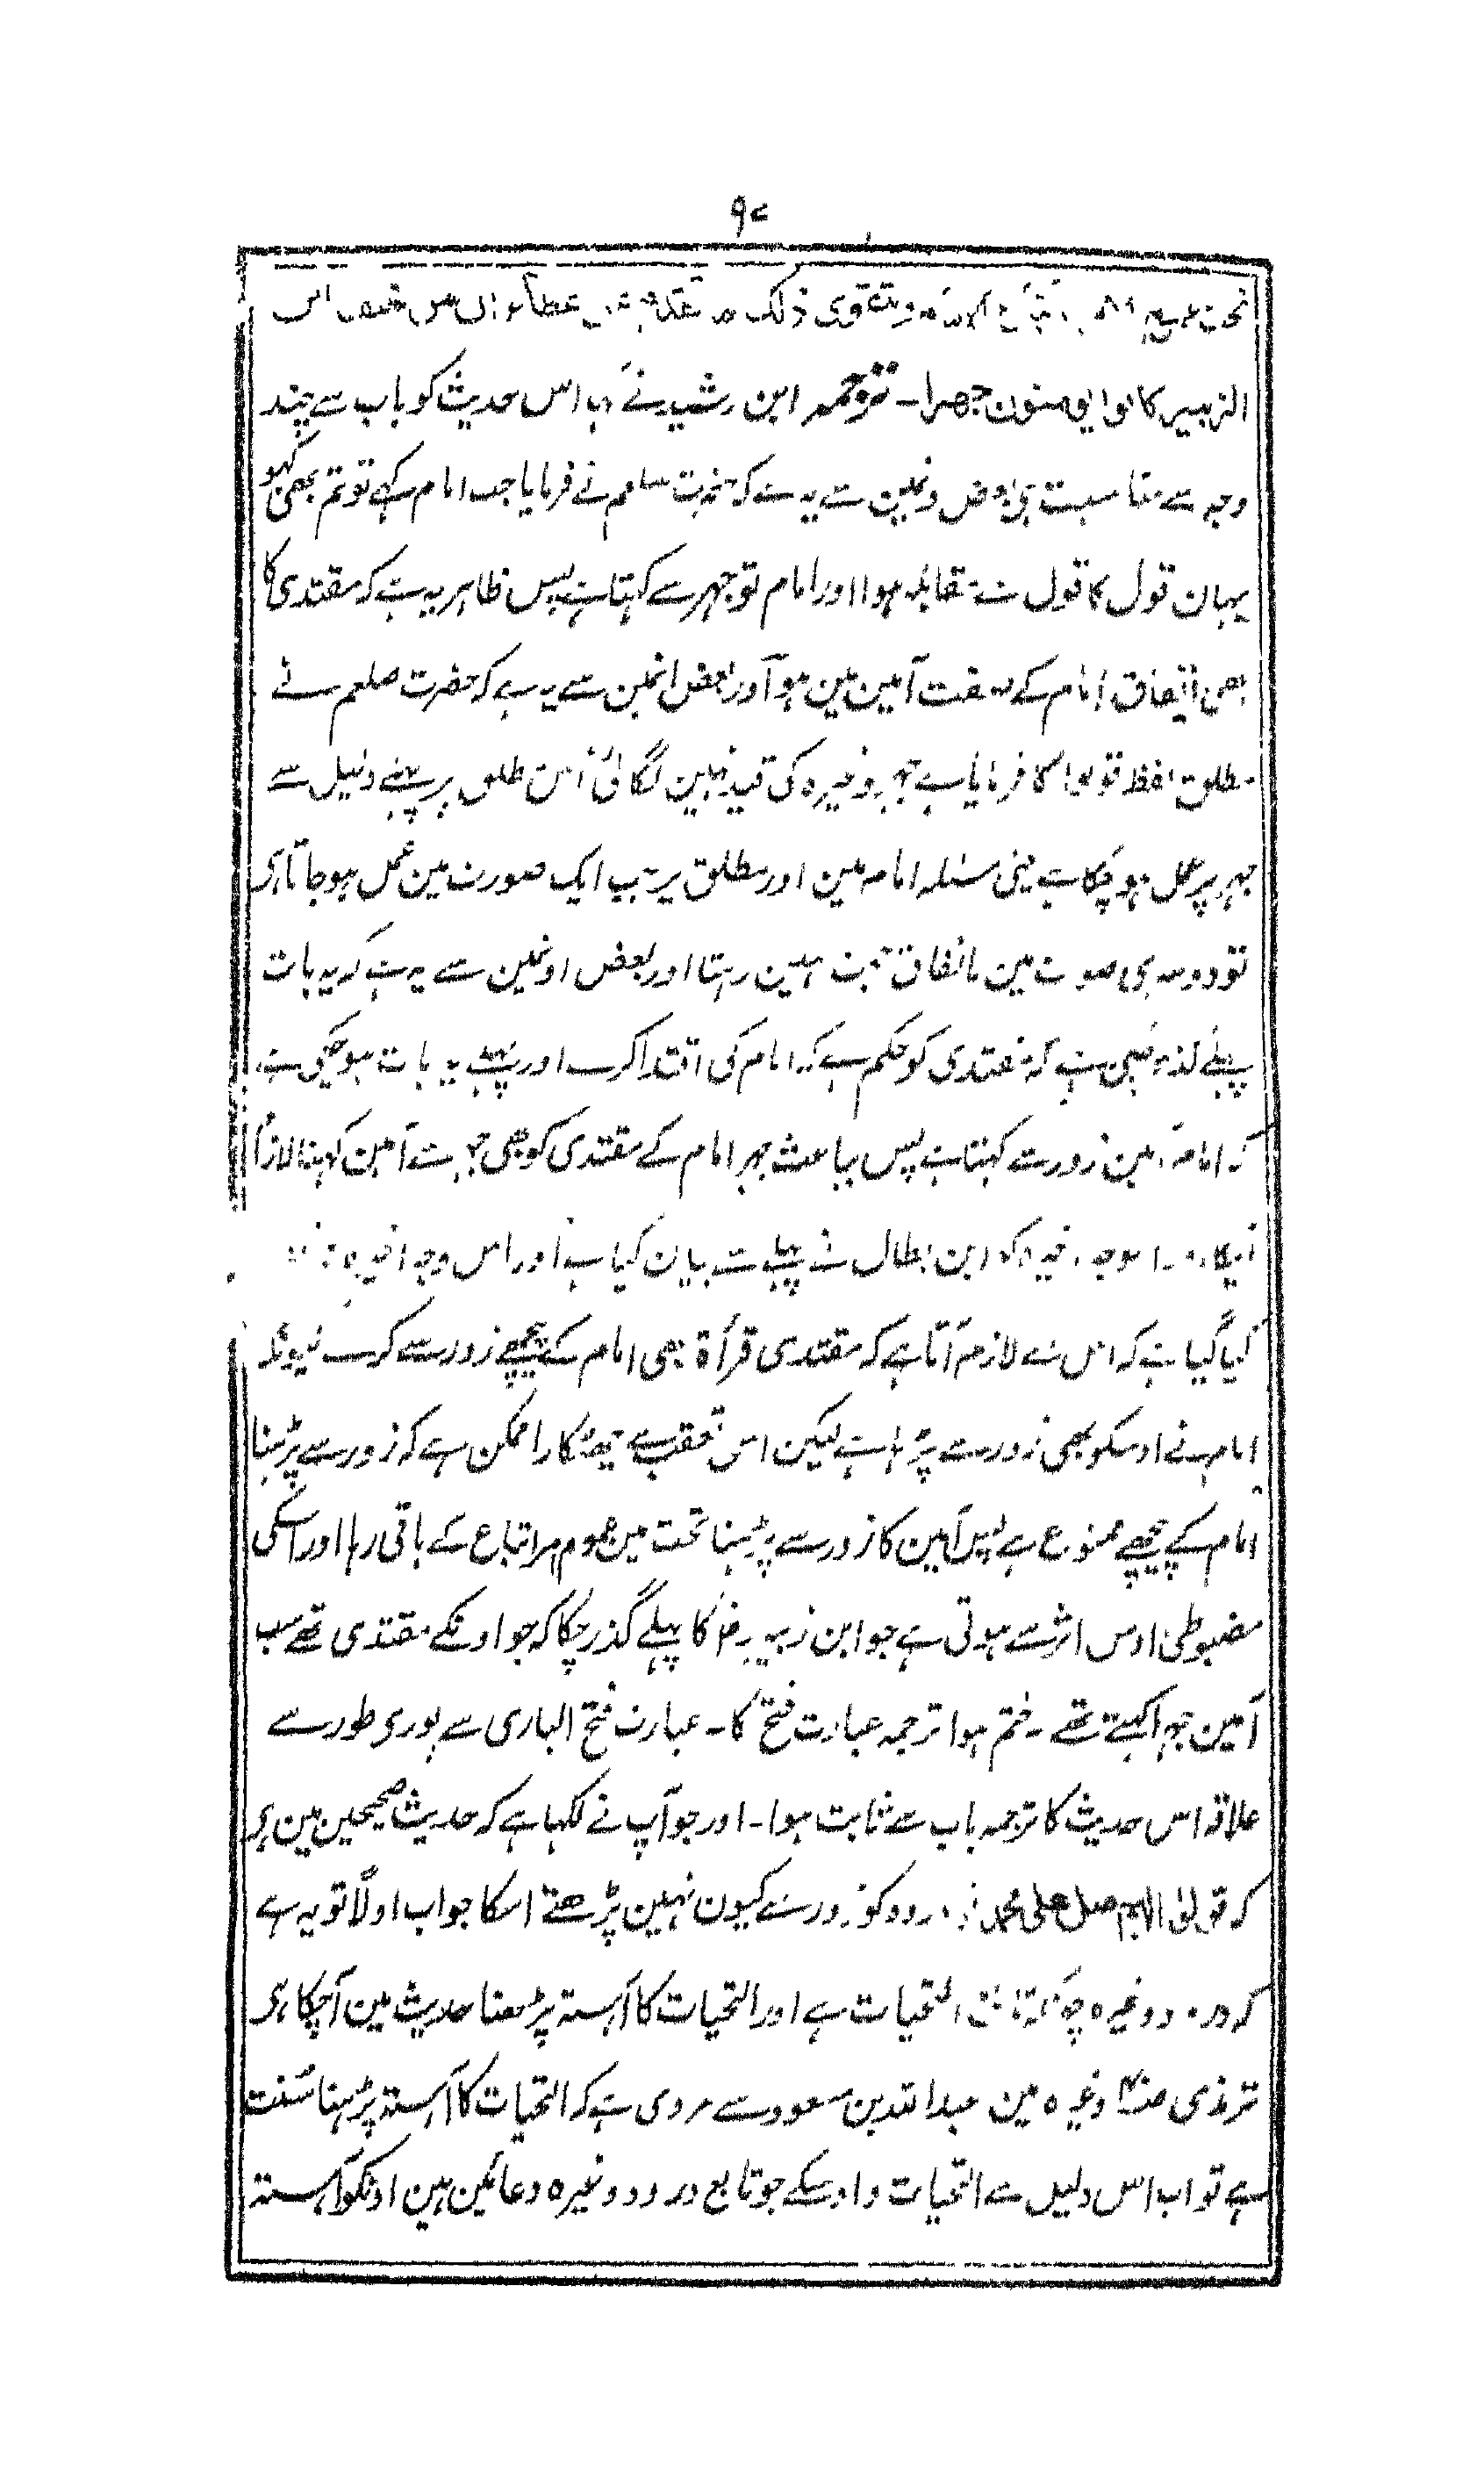 ۹۷
تحت عموم الامر باتباع الامام ويتقوى ذلك بما تقدم عن عطاء ان من خلف ابن
الزبير كانوا يؤمنون جهرا۔ ترجمہ ابن رشید نے کہا اس حدیث کو باب سے چند
وجہ سے مناسبت ہی بعض اونمین سے یہ ہے کہ حضرت صلعم نے فرمایا جب امام کہے تو تم بھی کہو
یہان قول کا قول سے مقابلہ ہوا اور امام تو جہر سے کہتا ہے پس ظاہر یہ ہے کہ مقتدی کا
بھی اتفاق امام کے صفت آمین مین ہو آور بعض انمین سے یہ ہے کہ حضرت صلعم نے
مطلق لفظ قولوا کا فرمایا ہے جہر وغیرہ کی قید نہین لگائی اس مطلق پر پہلے دلیل سے
جہر پر عمل ہو چکا ہے یعنی مسئلہ امام مین اور مطلق پر جب ایک صورت مین عمل ہو جاتا ہی
تو دوسری صورت مین باتفاق حجت نہین رہتا اور بعض اونمین سے یہ ہے کہ یہ بات
پہلے گذر چکی ہے کہ مقتدی کو حکم ہے کہ امام کی اقتدا کرے اور پہلے یہ بات ہو چکی ہے
کہ امام آمین زور سے کہتا ہے پس بباعث جہر امام کے مقتدی کو بھی جہر سے آمین کہنا لازم
آیگا۔ اس وجہ اخیر کو ابن بطال نے پہلے سے بیان کیا ہے اور اس وجہ اخیر پر
کہا گیا ہے کہ اس سے لازم آتا ہے کہ مقتدی قرأة بھی امام کے پیچھے زور سے کرے کیونکہ
امام نے اوسکو بھی زور سے پڑہا ہے لیکن اس تعقب سے چھٹکارا ممکن ہے کہ زور سے پڑہنا
امام کے پیچھے ممنوع ہے پس آمین کا زور سے پڑہنا تحت مین عموم امر اتباع کے باقی رہا اور اسکی
مضبوطی اوس اثر سے ہوتی ہے جو ابن زبیر رض کا پہلے گذر چکا کہ جو اونکے مقتدی تھے سب
آمین جہرا کہتے تھے۔ ختم ہوا ترجمہ عبارت فتح کا۔ عبارت فتح الباری سے پوری طور سے
علاقہ اس حدیث کا ترجمہ باب سے ثابت ہوا۔ اور جو آپ نے لکہا ہے کہ حدیث صحیحین مین ہی
کہ قولوا اللہم صل علی محمد تو درود کو زور سے کیون نہین پڑھتے اسکا جواب اولًا تو یہ ہے
کہ درود وغیرہ چونکہ تابع التحیات ہے اور التحیات کا آہستہ پڑھنا حدیث مین آچکا ہی
ترمذی وغیرہ مین عبداللہ بن مسعود سے مروی ہے کہ التحیات کا آہستہ پڑہنا سنت
ہے تو اب اس دلیل سے التحیات و اوسکے جو تابع درود وغیرہ دعائین ہین اونکو آہستہ